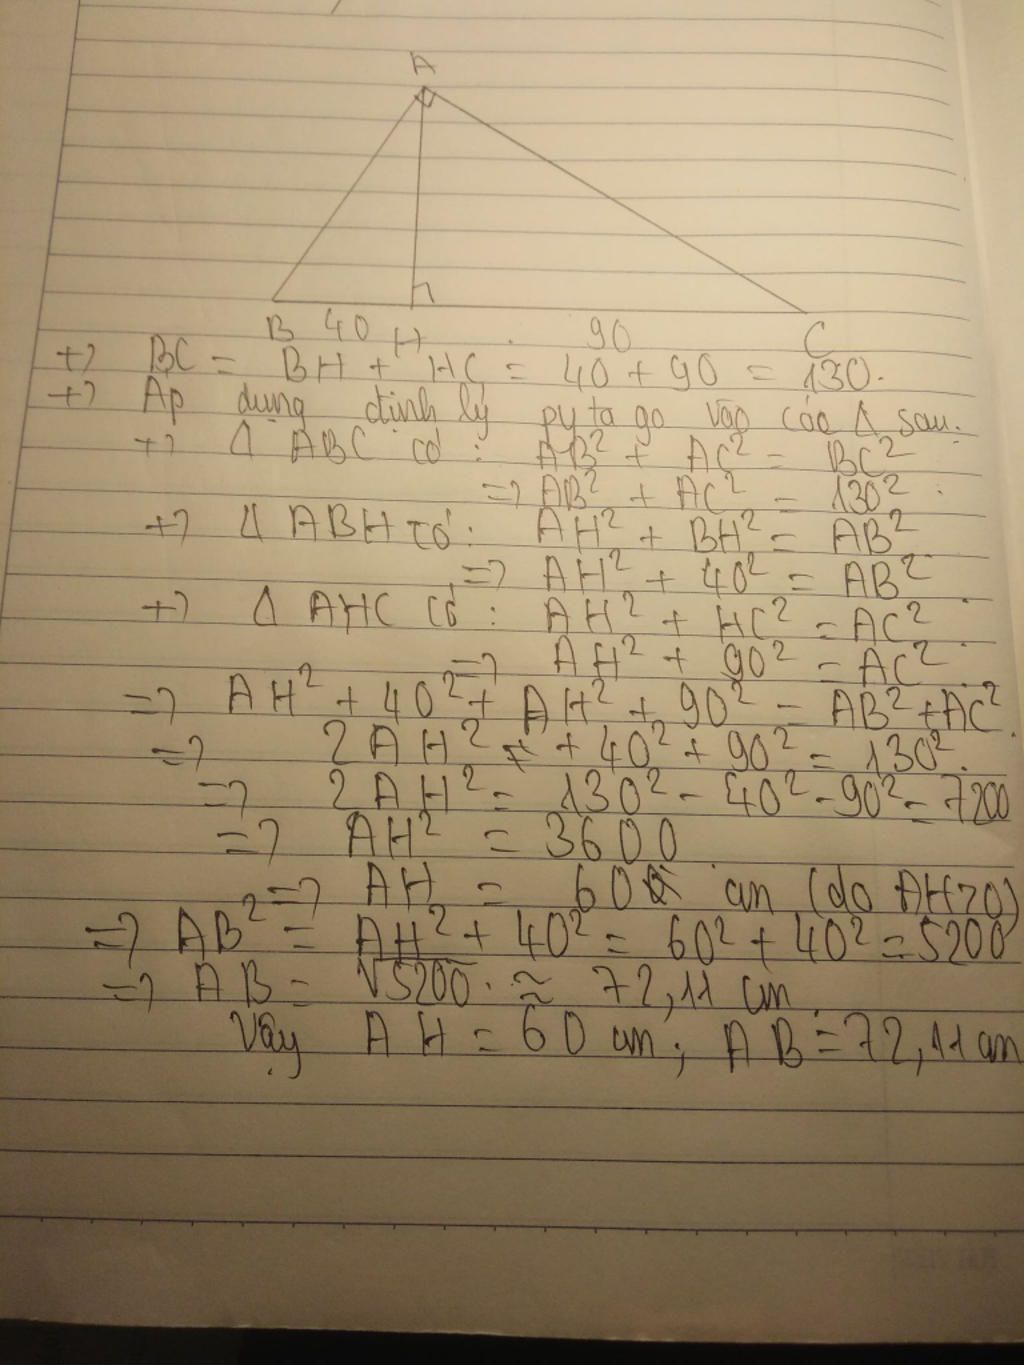 A
B 40 H 90 C
+) BC = BH + HC = 40 + 90 = 130.
+) Ap dụng định lý pytago vào các Δ sau:
+) Δ ABC có : AB² + AC² = BC²
=> AB² + AC² = 130²
+) Δ ABH có : AH² + BH² = AB²
=> AH² + 40² = AB²
+) Δ AHC có : AH² + HC² = AC²
=> AH² + 90² = AC²
=> AH² + 40² + AH² + 90² = AB² + AC².
=> 2AH² + 40² + 90² = 130².
=> 2AH² = 130² - 40² - 90² = 7200
=> AH² = 3600
=> AH = 60 cm (do AH>0)
=> AB² = AH² + 40² = 60² + 40² = 5200
=> AB = √5200 ≈ 72,11 cm
Vậy AH = 60 cm; AB = 72,11 cm